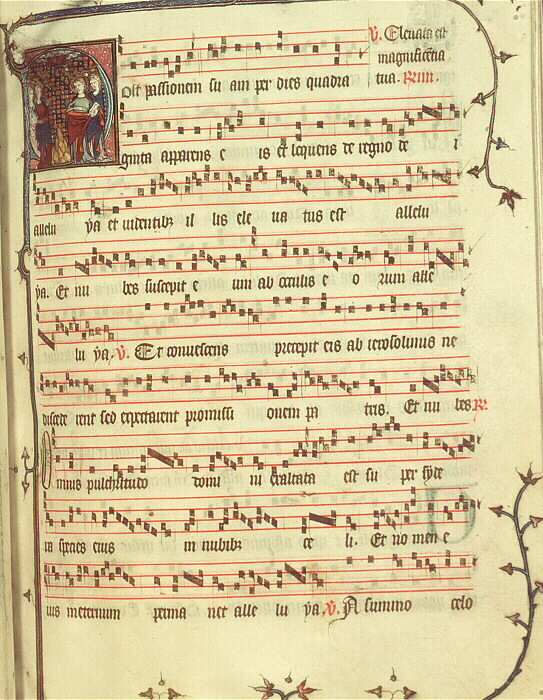 V. Eleuata est
magnificentia
Post passionem su am per dies quadra tua. R.
ginta apparens e is et loquens de regno de i
allelu ya et uidentibz il lis ele ua tus est allelu
ya. Et nu bes suscepit e um ab oculis e o rum alle
lu ya. V. Et conuescens precepit eis ab ierosolimis ne
discede rent sed expectarent promissi onem pa tris. Et nu bes. R.
Omnis pulchritudo domi ni exaltata est su per syde
ra species eius in nubibz ce li. Et no men e
ius in eternum perma net alle lu ya. V. A summo celo